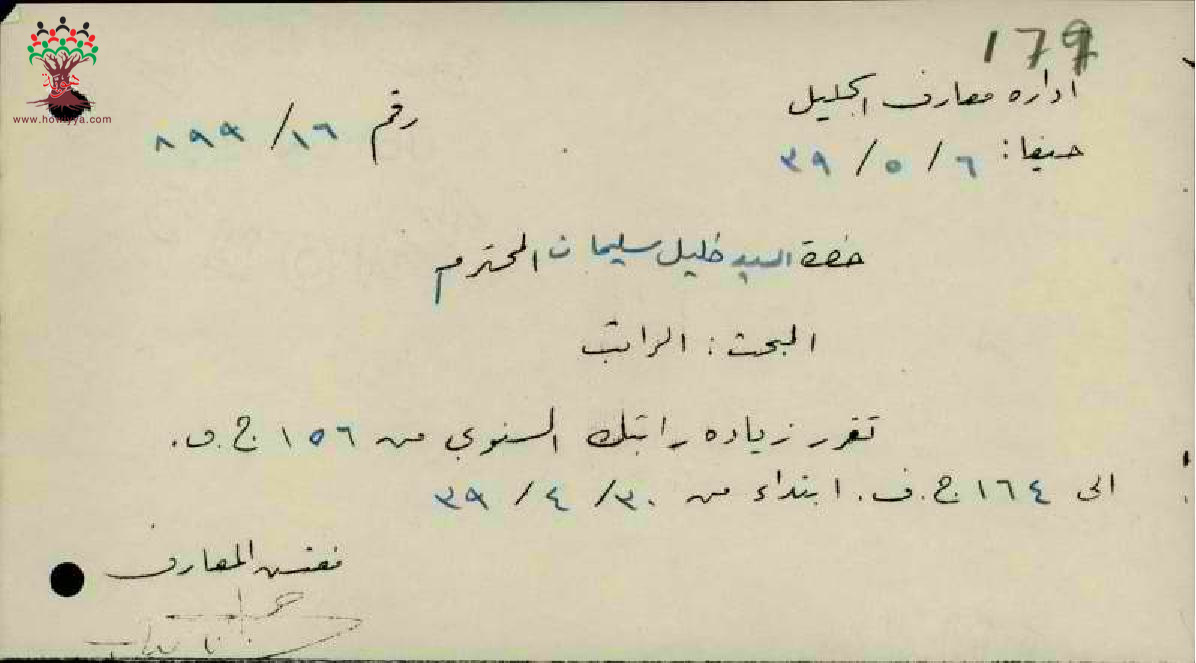 179
اداره معارف الجليل
رقم ١٦/ ٨٩٩
حيفا: ٦/ ٥/ ٣٩
حضرة السيد خليل سليمان المحترم
البحث: الراتب
تقرر زياده راتبك السنوي من ١٥٦ ج.ف.
الى ١٦٤ ج.ف. ابتداء من ٣٠/ ٤/ ٣٩
مفتش المعارف
www.howiyya.com